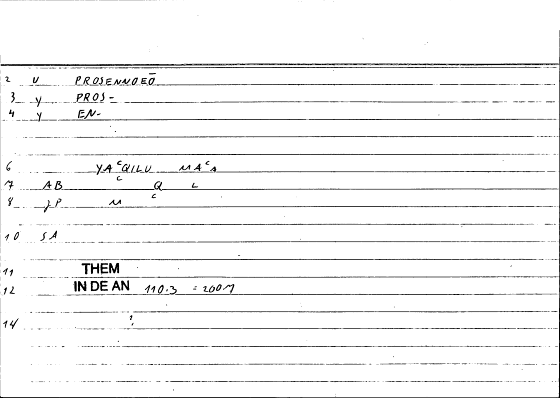 2 V PROSENNOEŌ
3 y PROS-
4 y EN-
6 YAᶜQILU MAᶜA
7 AB ᶜ Q L
8 JP M ᶜ
10 SA
11 THEM
12 IN DE AN 110.3 = 200.7
14